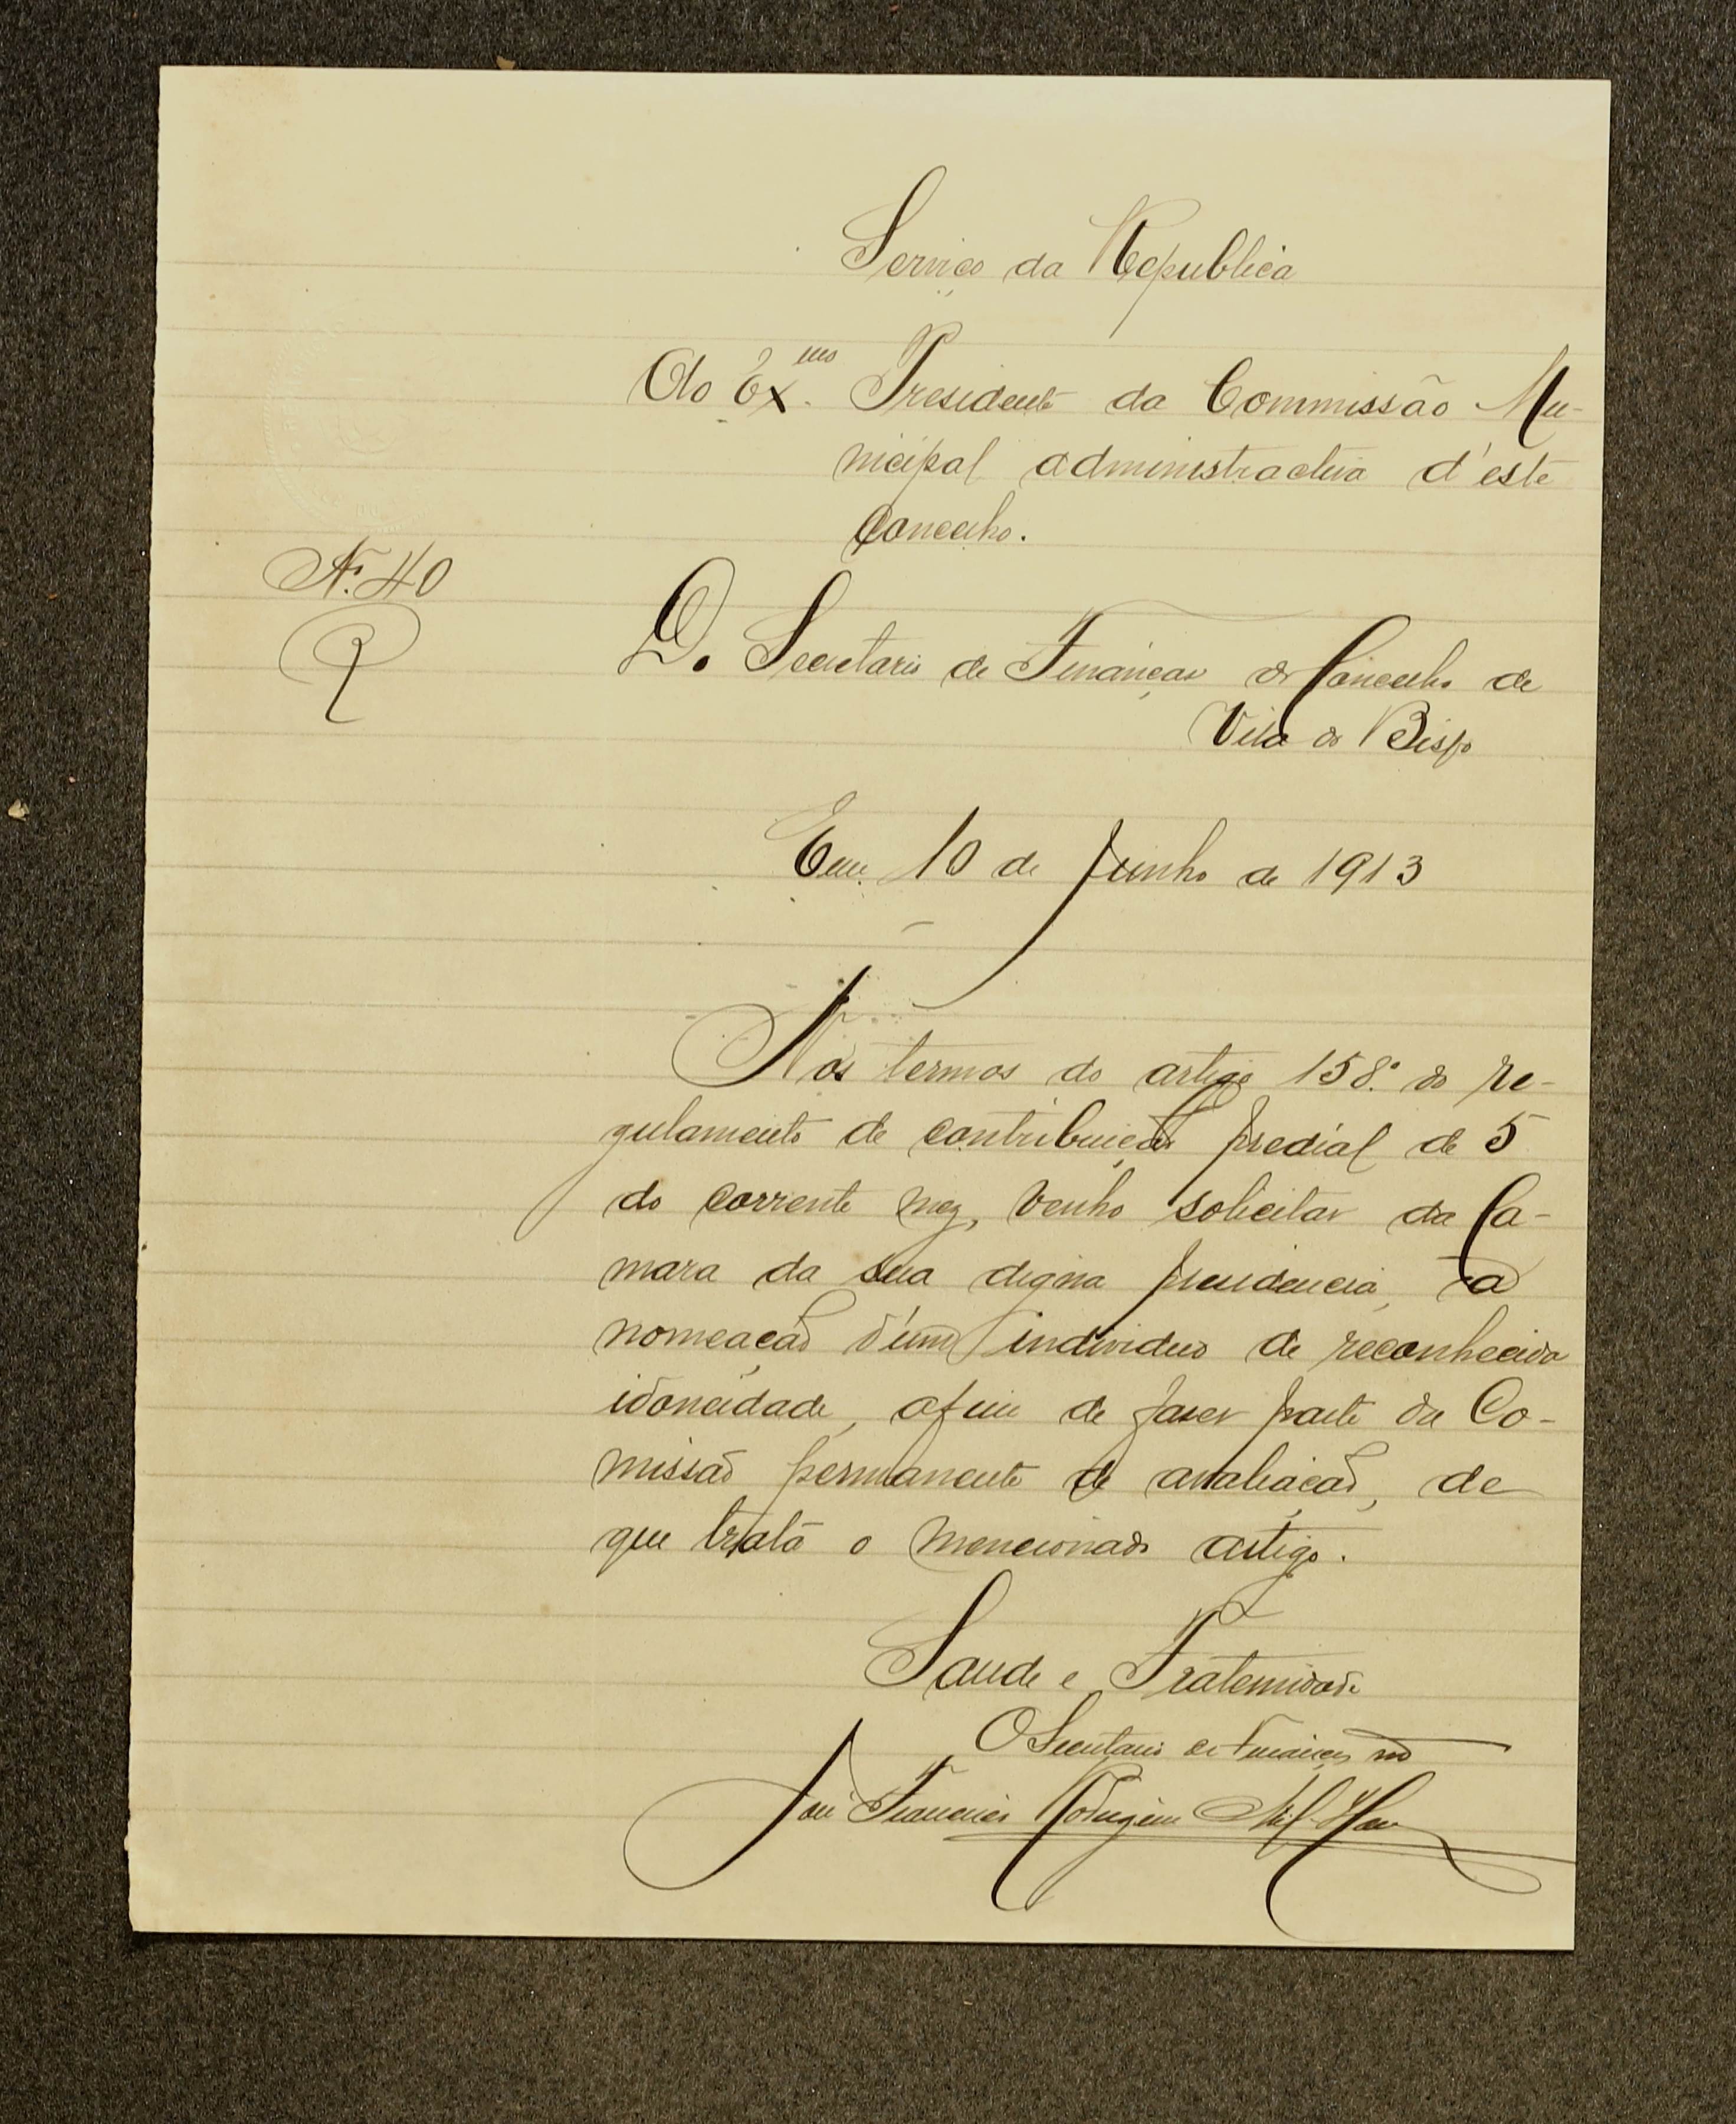 Serviço da Republica
Ao Exmo. Presidente da Commissão Mu-
nicipal administractiva d'este
Concelho.
N.º 40
R
D. Secretario de Finanças do Concelho de
Vila do Bispo
Em 10 de Junho de 1913
Nos termos do artigo 158.º do re-
gulamento de contribuição predial de 5
do corrente mez, venho solicitar da Ca-
mara da sua digna presidencia, a
nomeação d'um individuo de reconhecida
idoneidade, afim de faser parte da Co-
missão permanente de avaliação, de
que trata o mencionado artigo.
Saude e Fraternidade
O Secretario de Finanças
José Francisco Rodrigues